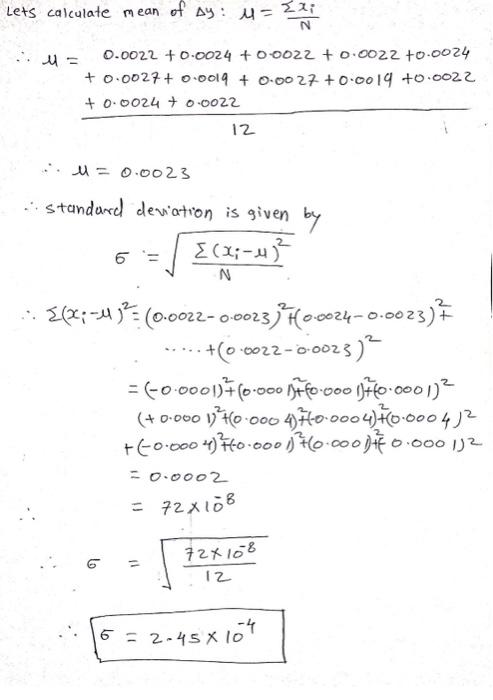 Lets calculate mean of Δy : μ = Σxi/N
∴ μ = 0.0022 + 0.0024 + 0.0022 + 0.0022 + 0.0024
+ 0.0027 + 0.0019 + 0.0027 + 0.0019 + 0.0022
+ 0.0024 + 0.0022
12
∴ μ = 0.0023
∴ standard deviation is given by
σ = √(Σ(xi-μ)²/N)
∴ Σ(xi-μ)² = (0.0022-0.0023)²+(0.0024-0.0023)²+
.....+(0.0022-0.0023)²
= (-0.0001)²+(0.0001)²+(-0.0001)²+(-0.0001)²
(+0.0001)²+(0.0004)²+(-0.0004)²+(0.0004)²
+(-0.0004)²+(-0.0001)²+(0.0001)²+(-0.0001)²
= 0.0002
∴ = 72×10⁻⁸
∴ σ = √(72×10⁻⁸/12)
∴ σ = 2.45×10⁻⁴